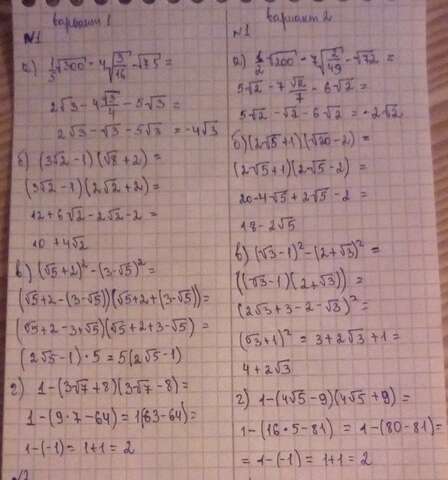 вариант 1
№1
а) 1/3 √300 - 4√(3/16) - √75 =
2√3 - 4 √3/4 - 5√3 =
2√3 - √3 - 5√3 = -4√3
б) (3√2 - 1)(√8 + 2) =
(3√2 - 1)(2√2 + 2) =
12 + 6√2 - 2√2 - 2 =
10 + 4√2
в) (√5 + 2)² - (3-√5)² =
(√5 + 2 - (3-√5))(√5 + 2 + (3-√5)) =
(√5 + 2 - 3 + √5)(√5 + 2 + 3 - √5) =
(2√5 - 1) · 5 = 5(2√5 - 1)
г) 1 - (3√7 + 8)(3√7 - 8) =
1 - (9 · 7 - 64) = 1(63 - 64) =
1 - (-1) = 1 + 1 = 2
вариант 2
№1
а) 1/2 √200 - 7√(2/49) - √72 =
5√2 - 7 √2/7 - 6√2 =
5√2 - √2 - 6√2 = -2√2
б) (2√5 + 1)(√20 - 2) =
(2√5 + 1)(2√5 - 2) =
20 - 4√5 + 2√5 - 2 =
18 - 2√5
в) (√3 - 1)² - (2 + √3)² =
((√3 - 1)(2 + √3)) =
(2√3 + 3 - 2 - √3)² =
(√3 + 1)² = 3 + 2√3 + 1 =
4 + 2√3
г) 1 - (4√5 - 9)(4√5 + 9) =
1 - (16 · 5 - 81) = 1 - (80 - 81) =
= 1 - (-1) = 1 + 1 = 2